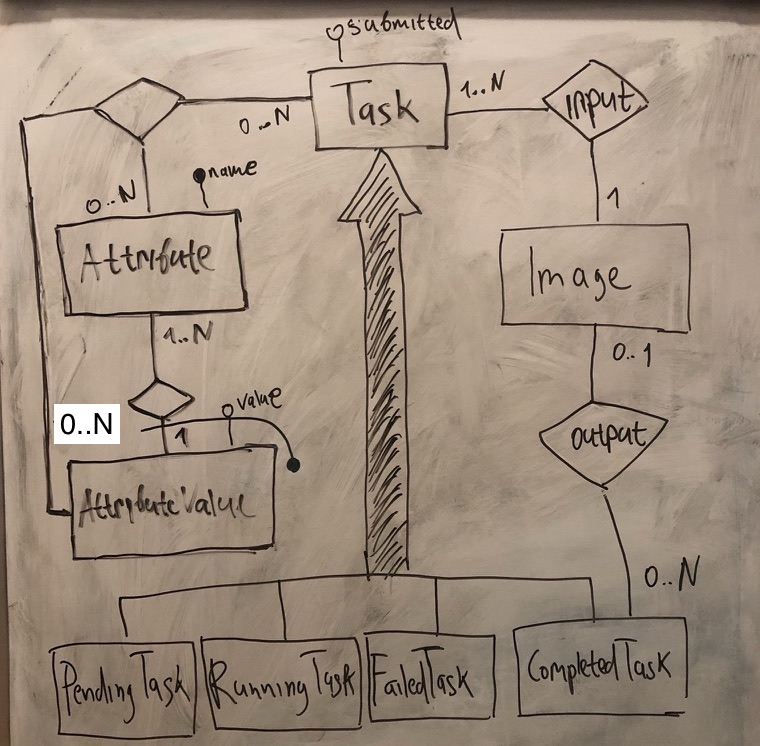 submitted
Task
1..N
input
0..N
name
0..N
1
Attribute
Image
1..N
0..1
value
0..N
1
output
AttributeValue
0..N
PendingTask
RunningTask
FailedTask
CompletedTask